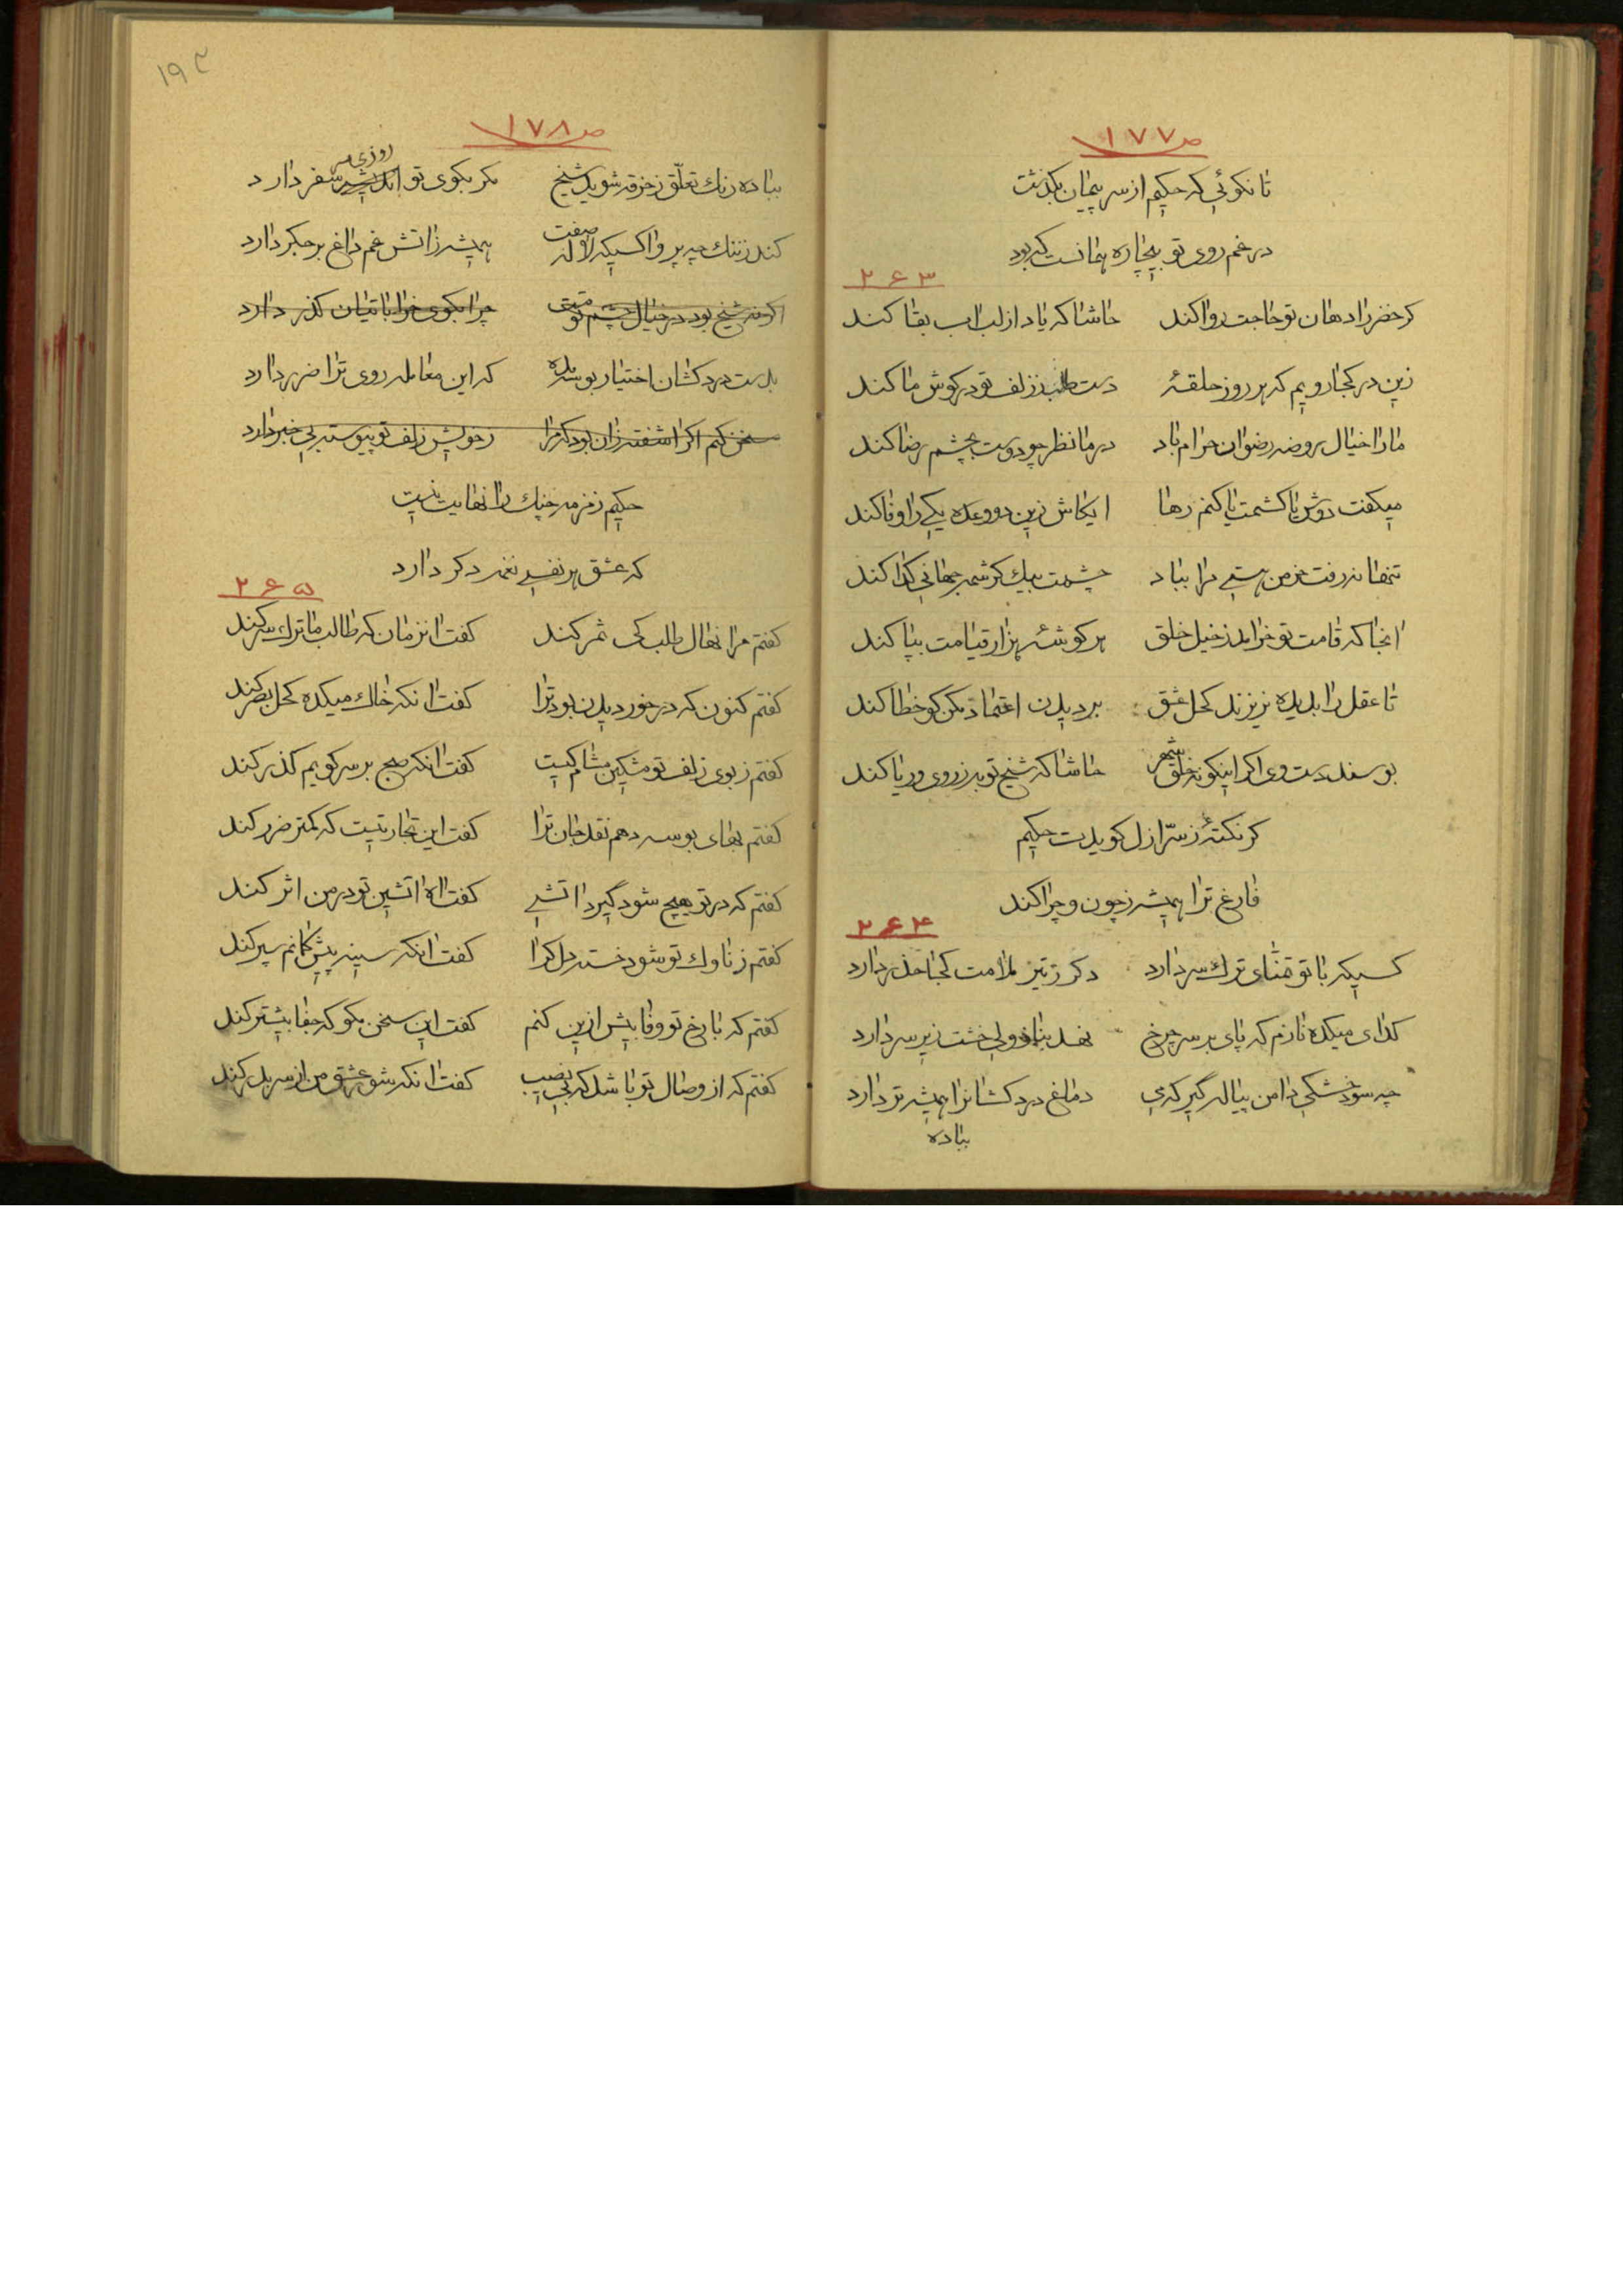 ص ۱۷۷
تا نکوئی که حکیم از سر پیمان بکذشت
در غم روی تو بیچاره همانست که بود
۲۶۳
کر خضر را دهان تو حاجت روا کند حاشا که یاد از لب آب بقا کند
زین در کجا رویم که هر روز حلقهٔ دست طلب ز زلف تو در کوش ما کند
ما را خیال روضه رضوان حرام باد در ما نظر چو دوست بچشم رضا کند
میکفت دوش یا کشمت یا کنم رها ایکاش زین دو وعده یکی را وفا کند
تنها نه رفت خرمن هستی مرا بباد چشمت بیک کرشمه جهانی کدا کند
آنجا که قامت تو خرامد ز خیل خلق هر کوشهٔ هزار قیامت بپا کند
تا عقل را بدیده نریزند کحل عشق بر دیدن اعتماد مکن کو خطا کند
بوسند دست وی اکر اینکونه خلق شهر حاشا که شیخ توبه ز روی و ریا کند
کر نکتهٔ ز سرّ ازل کویدت حکیم
فارغ ترا همیشه ز چون و چرا کند
۲۶۴
کسیکه با تو تمنّای ترک سر دارد دکر ز تیر ملامت کجا حذر دارد
کدای میکده نازم که پای بر سر چرخ نهد بناز ولی خشت زیر سر دارد
چه سود خشکی دامن پیاله گیر که می دماغ دردکشانرا همیشه تر دارد
بباده
۱۹۲
ص ۱۷۸
بباده رنک تعلّق ز خرقه شوید شیخ مکر بکوی تو روزی سر سفر دارد
کند ز ننک چه پروا کسیکه لاله صفت همیشه ز آتش غم داغ بر جکر دارد
اکر نه شیخ بود در خیال چشم تو مست چرا بکوی خراباتیان کذر دارد
بدست دردکشان اختیار بوسه مده که این معامله روی ترا ضرر دارد
سخن کنم اکر آشفته زان بود که مرا ز خویش زلف تو پیوسته بی خبر دارد
حکیم زمزمه چنک را نهایت نیست
که عشق هر نفسی نغمه دکر دارد
۲۶۵
کفتم مرا نهال طلب کی ثمر کند کفت آنزمان که طالب ما ترک سر کند
کفتم کنون که در خور دیدن بود ترا کفت آنکه خاک میکده کحل بصر کند
کفتم ز بوی زلف تو مشکین مشام کیست کفت آنکه صبح بر سر کویم کذر کند
کفتم بهای بوسه دهم نقد جان ترا کفت این تجارتیست که کمتر ضرر کند
کفتم که در تو هیچ شود گیرد آتشی کفت آه آتشین تو در من اثر کند
کفتم ز ناوک تو شود خسته دل کرا کفت آنکه سینه پیش کمانم سپر کند
کفتم که با رخ تو وفا بیش ازین کنم کفت این سخن مکو که جفا بیشتر کند
کفتم که از وصال تو باشد که بی نصیب کفت آنکه شور عشق من از سر بدر کند